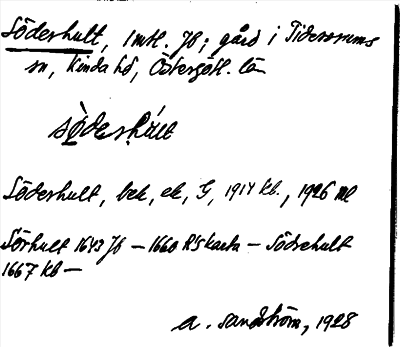 Söderhult, 1 mtl. Jb; gård i Tidersrums
sn, Kinda hd, Östergötl. län
sö̀derhúlt
Söderhult, bek, ek, G, 1917 kb., 1926 ml
Sörhult 1643 Jb – 1660 R's karta – Södrehult
1667 kb –
A. Sandström, 1928